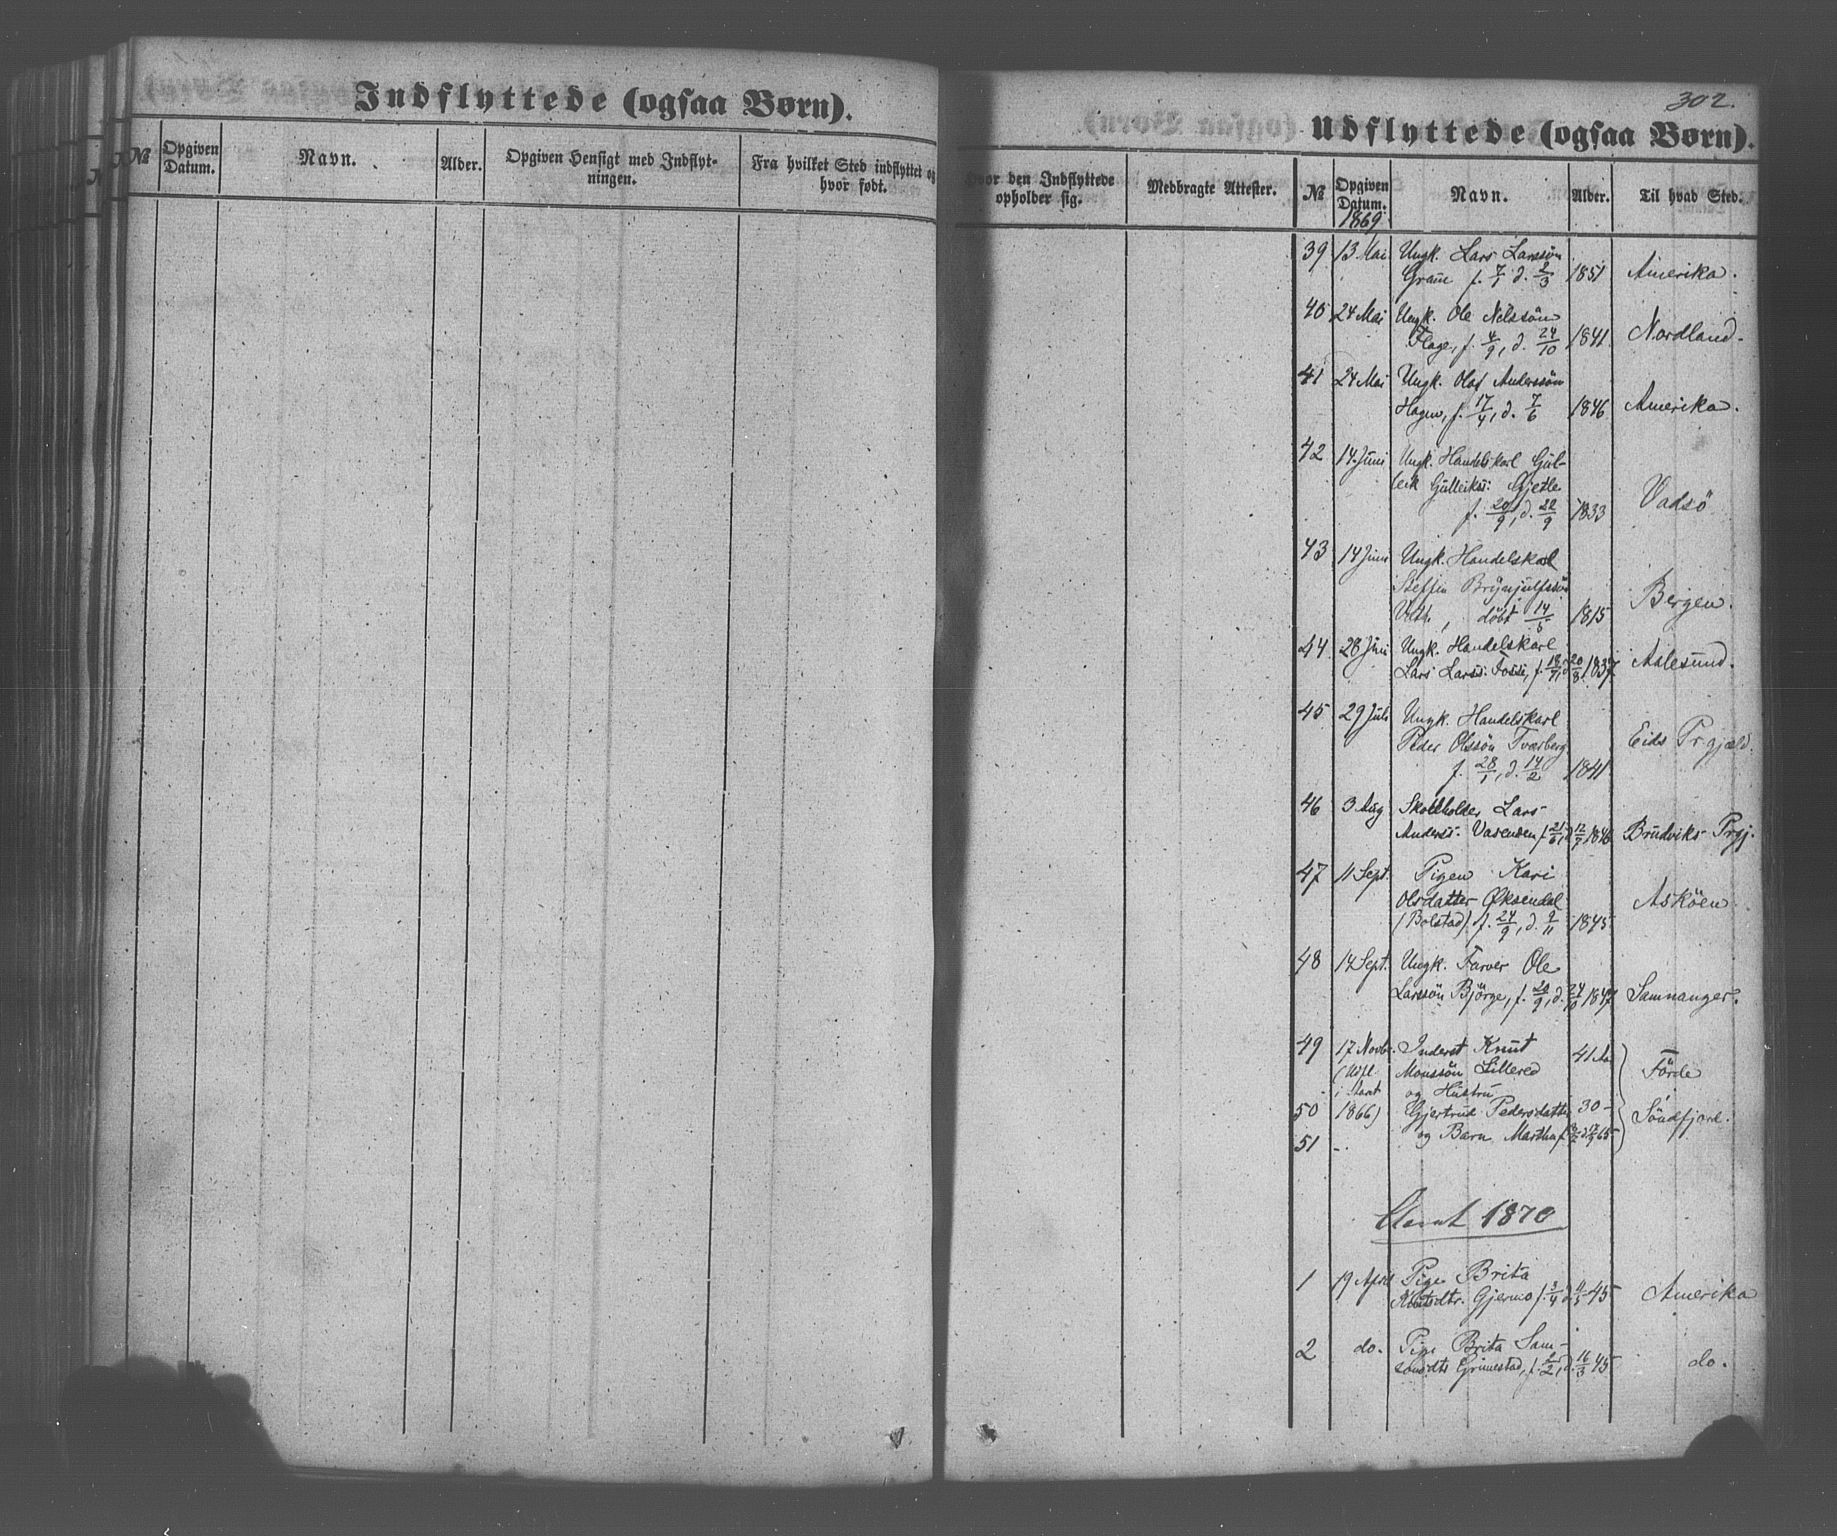 Indflyttede (ogsaa Børn).
№ Opgiven Datum. Navn. Alder. Opgiven Hensigt med Indflyt-
ningen. Fra hvilket Sted indflyttet og
hvor født.
302.
Udflyttede (ogsaa Børn).
Hvor den Indflyttede
opholder sig. Medbragte Attester. № Opgiven
Datum. Navn. Alder. Til hvad Sted.
1869
39 13 Mai Ungk. Lars Larssön
f. 7/1 d. 2/3 1851 Amerika.
40 24 Mai Ungk. Ole Nilssön
Flage, f. 4/9, d. 24/10 1841 Nordland.
41 24 Mai Ungk. Olaf Anderssön
Hagen, f. 17/4, d. 7/6 1846 Amerika.
42 14 Juni Ungk. Handelskarl Gul-
leik Gulleiks: Gjetle
f. 20/9, d. 22/9 1833 Vadsö
43 14 Juni Ungk. Handelskarl
Steffen Brynjulfssön
döbt 14/5 1815 Bergen.
44 28 Juni Ungk. Handelskarl
Lars Larss: Fosse, f. 18/7, d. 20/8 1837 Aalesund.
45 29 Juli Ungk. Handelskarl
Peder Olssön Tværberg
f. 28/1, d. 14/2 1841 Eids Prgjæld.
46 3 Aug Skoleholder Lars
Anderss: Vasenden f. 21/6, d. 12/7 1846 Brudviks Prgj.
47 11 Sept. Pigen Kari
Olsdatter Øksendal
(Bolstad) f. 24/9, d. 9/11 1845 Asköen
48 14 Sept. Ungk. Farver Ole
Larssön Björge, f. 20/9, d. 24/10 1847 Samnanger.
49 17 Novbr. Inderst Knut 41 Aar
(Udfl. Monssön Lillered Förde
i Aaret og Hustru
50 1866) Gjertrud Pedersdatter 30 - Söndfjord.
51 - og Barn Martha
Aaret 1870
1 19 April Pige Brita
Knutsdtr. Gjermo f. 3/4 d. 11/5 45 Amerika
2 do. Pige Brita Sam-
sonsdtr Grimestad, f. 2/2, d. 16/3 45 do.